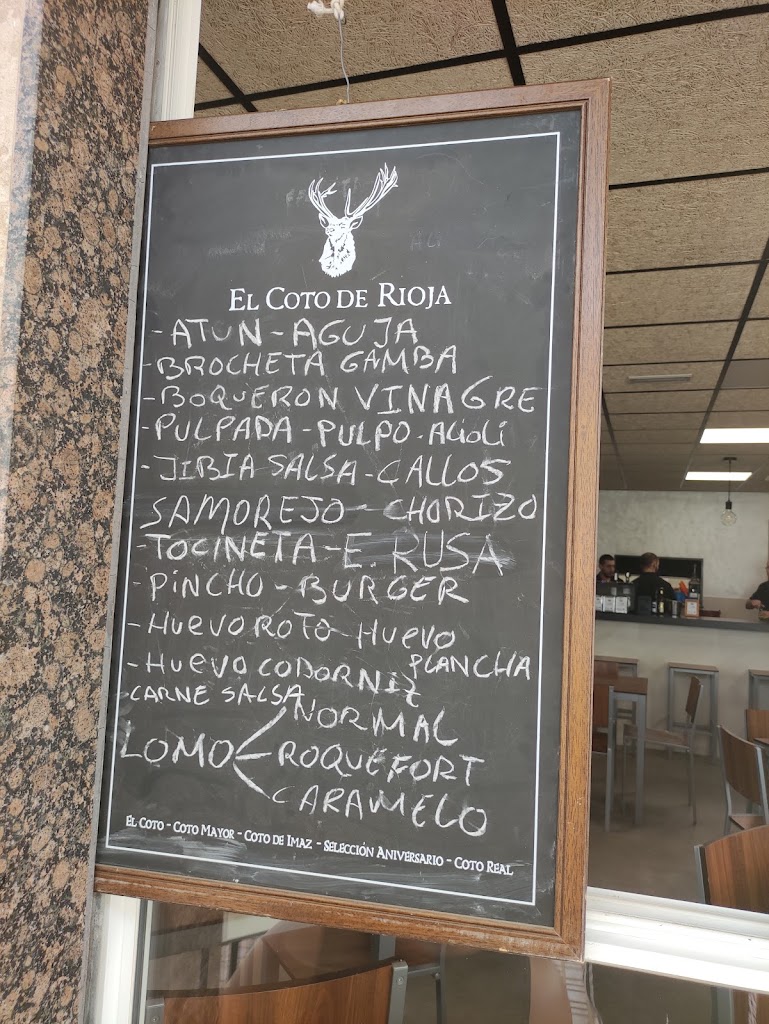 EL COTO DE RIOJA
-ATUN-AGUJA
-BROCHETA GAMBA
-BOQUERON VINAGRE
-PULPADA-PULPO-ALIOLI
-JIBIA SALSA-CALLOS
SAMOREJO-CHORIZO
-TOCINETA-E. RUSA
-PINCHO-BURGER
-HUEVO ROTO-HUEVO PLANCHA
-HUEVO CODORNIZ
-CARNE SALSA
LOMO
NORMAL
ROQUEFORT
CARAMELO
EL COTO - COTO MAYOR - COTO DE IMAZ - SELECCIÓN ANIVERSARIO - COTO REAL